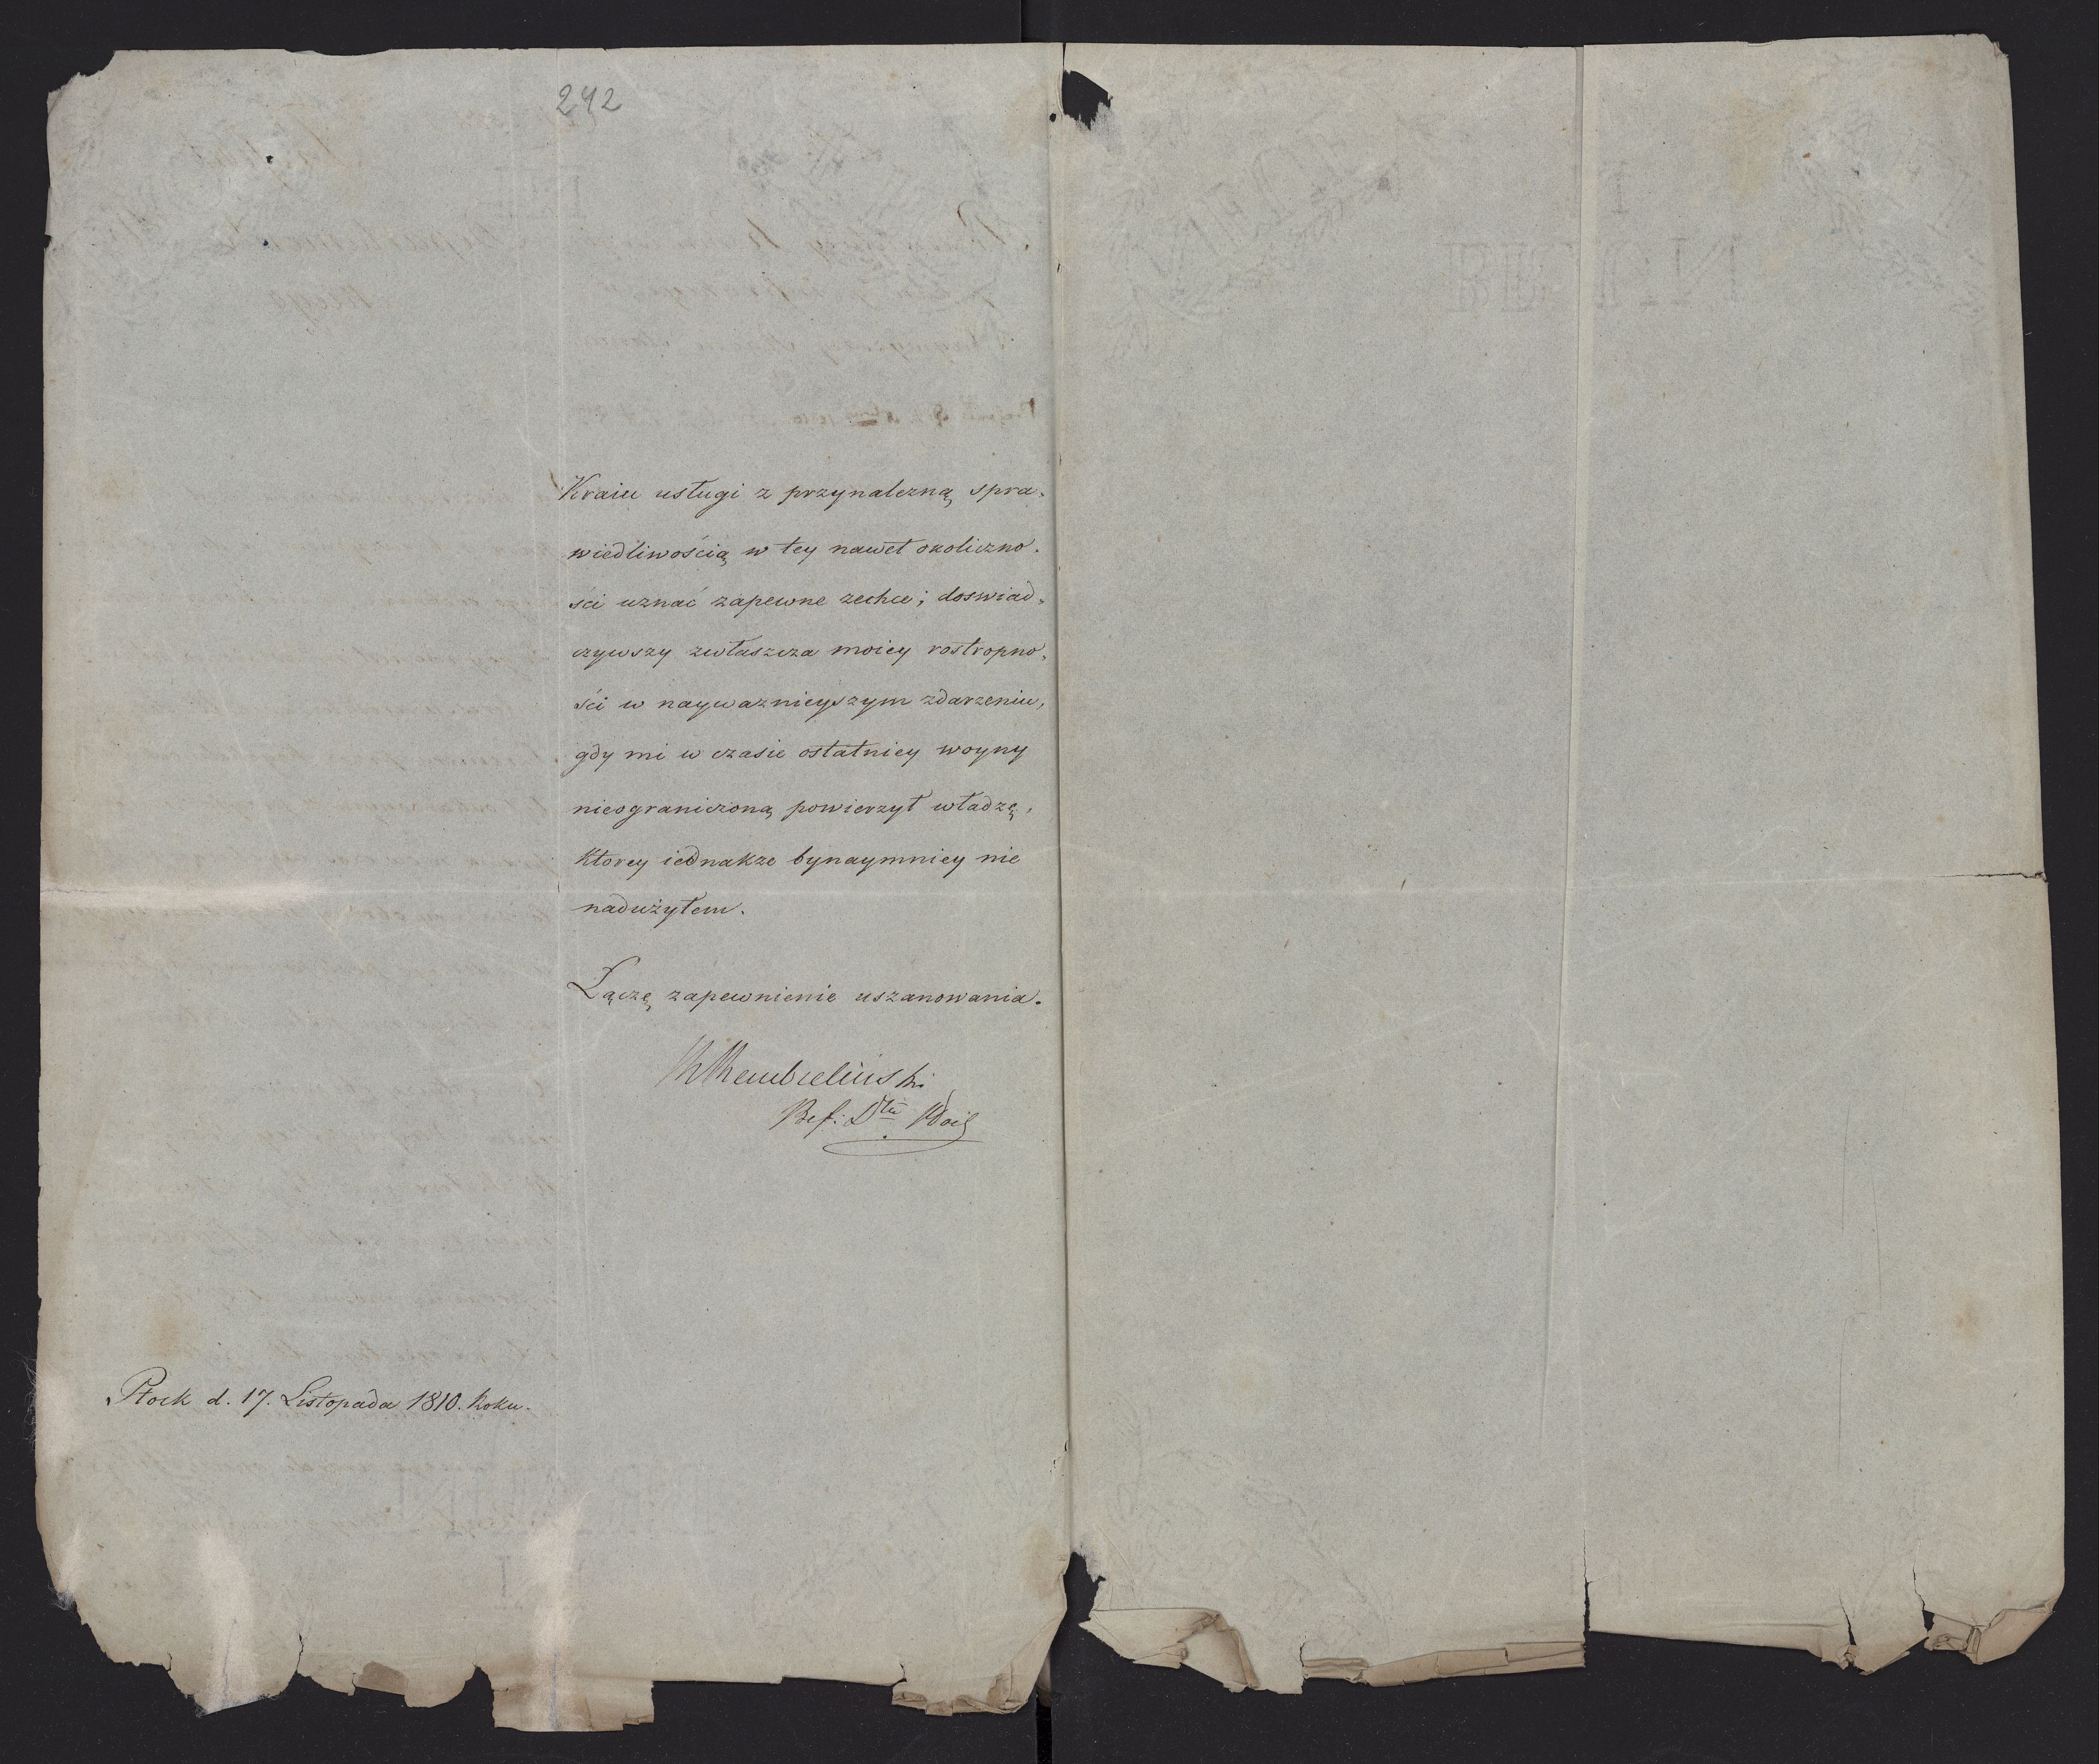 242
Kraiu usługi z przynalezną spra-
wiedliwością w tey nawet okoliczno-
ści uznać zapewne zechce; doswiad-
czywszy zwłaszcza moiey rostropno-
ści w naywaznieyszym zdarzeniu,
gdy mi w czasie ostatniey woyny
nieograniczoną powierzył władzę,
ktorey iednakze bynaymniey nie
nadużyłem.
Łączę zapewnienie uszanowania.
RRembielinski
Płock d. 17. Listopada 1810. Roku.